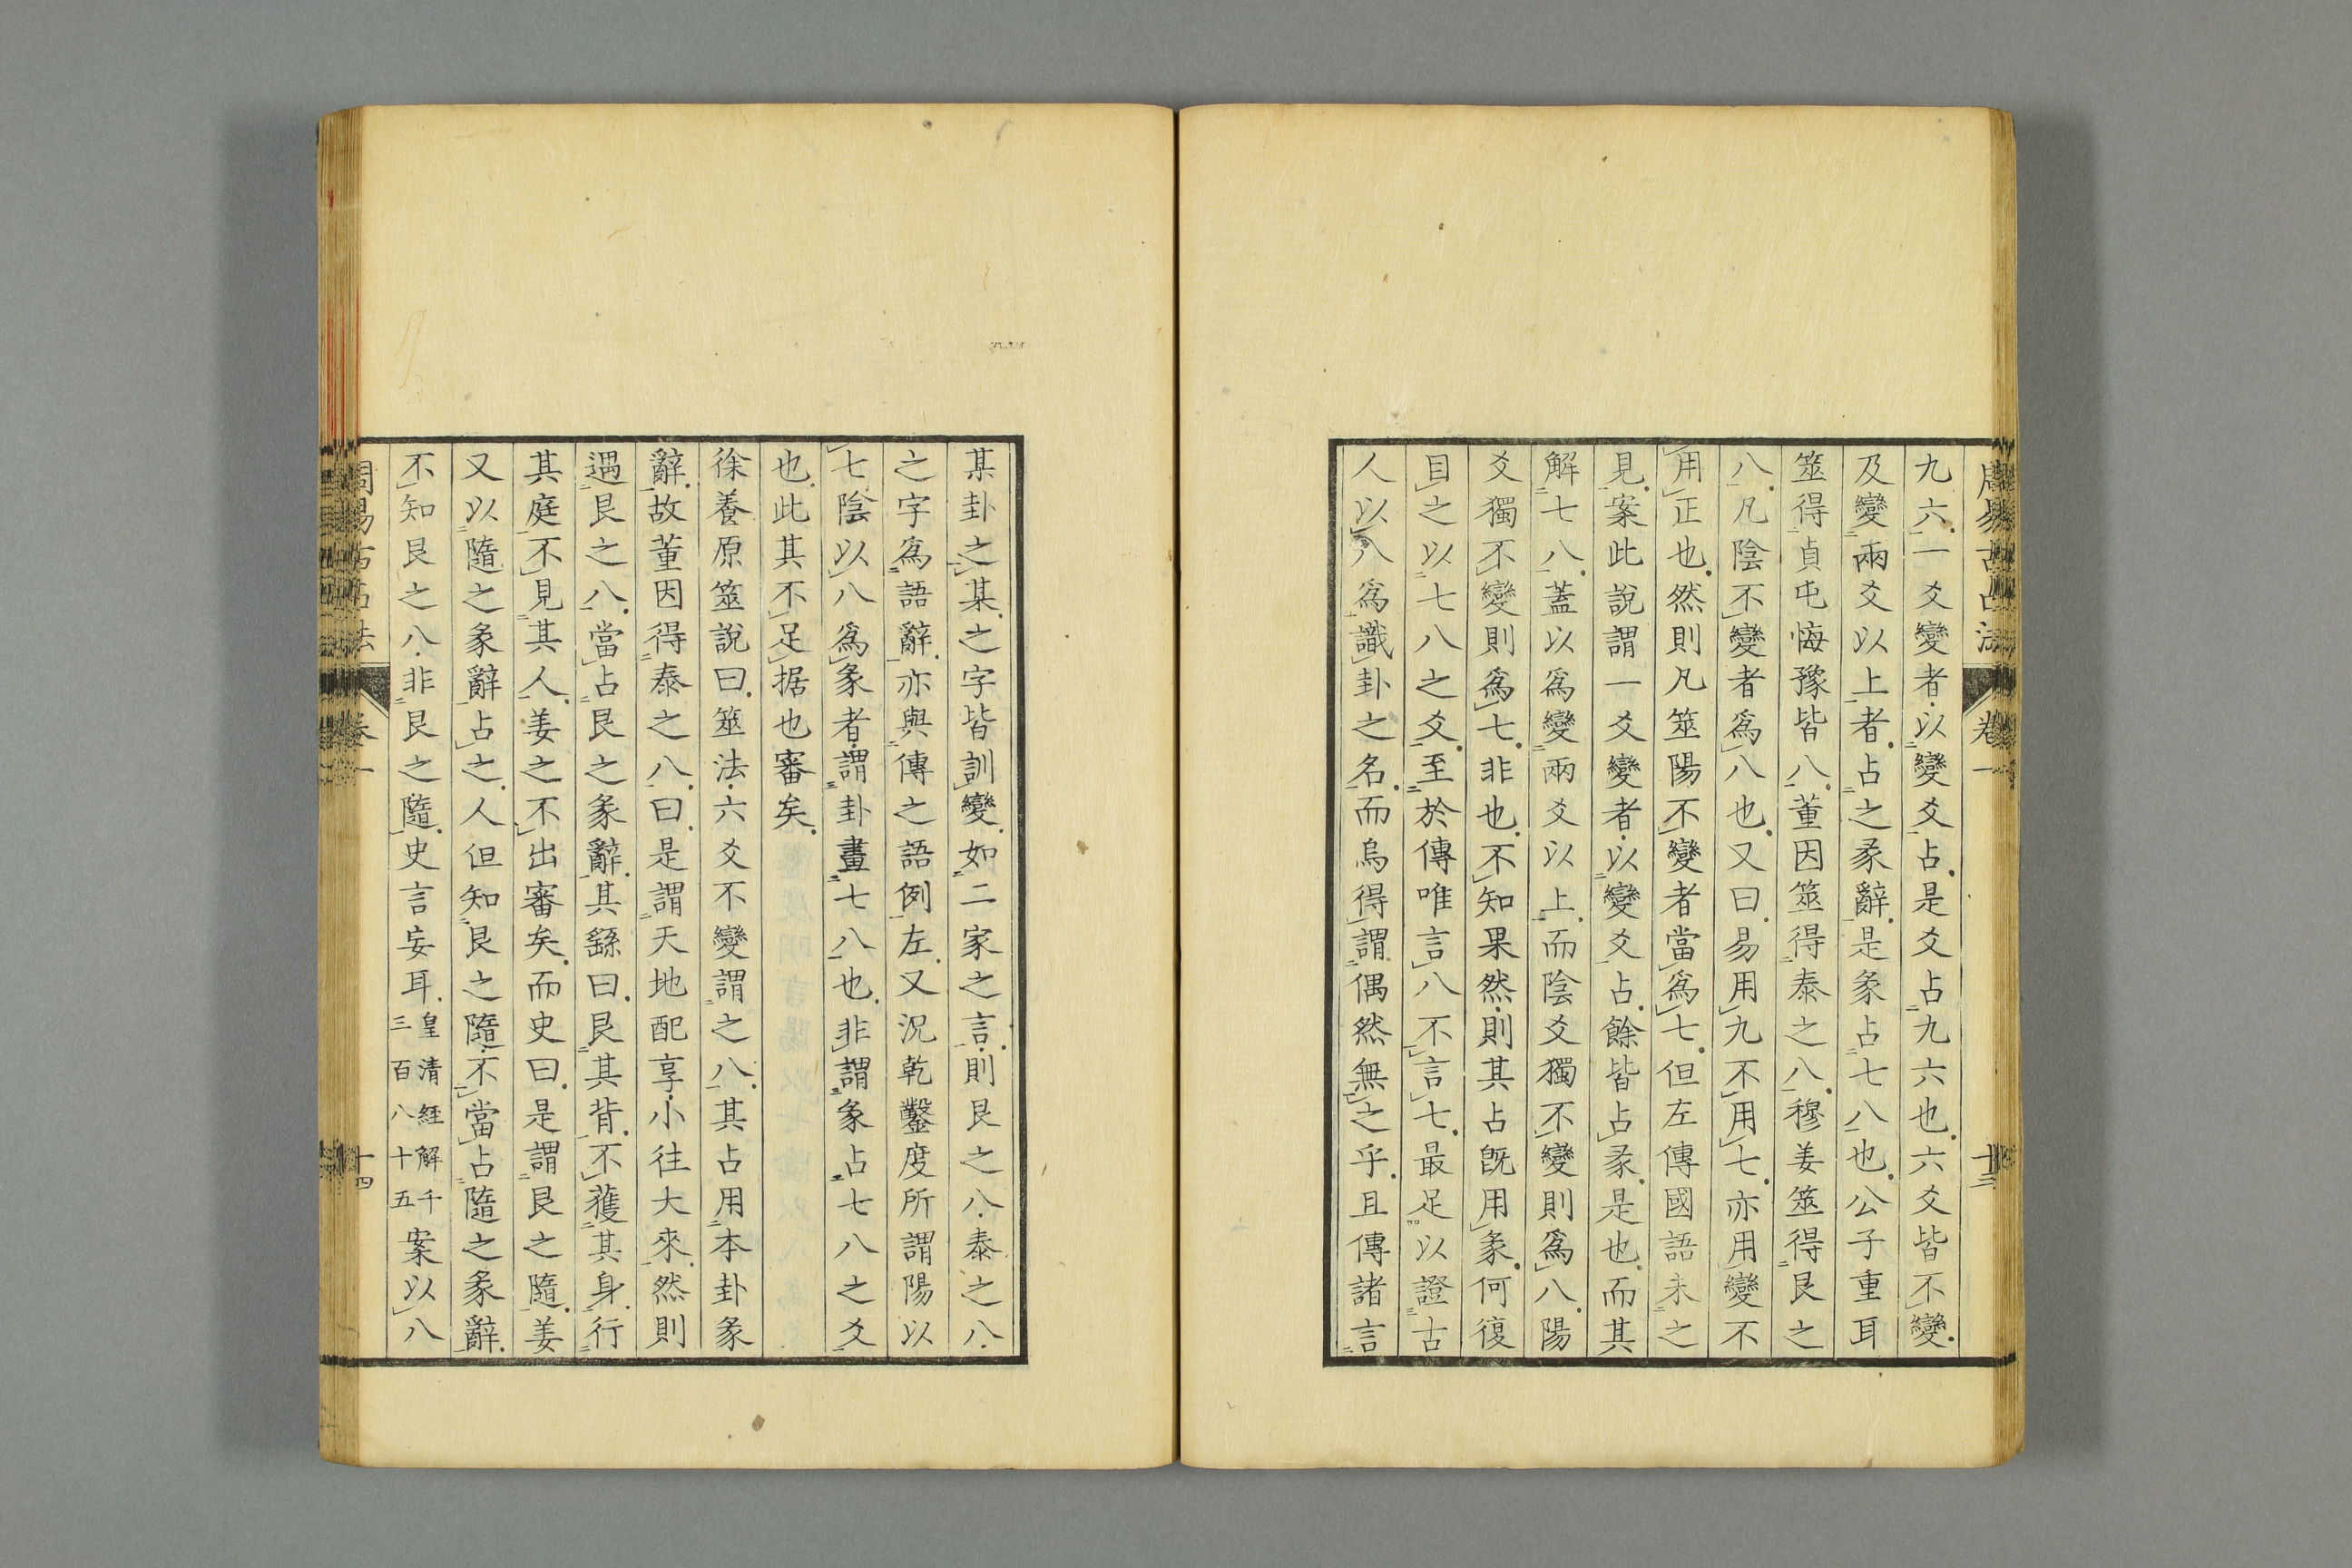 周易古占法 卷一 十三
九六一爻變者以變爻占是爻占九六也六爻皆不變
及變兩爻以上者占之彖辭是彖占七八也公子重耳
筮得貞屯悔豫皆八董因筮得泰之八穆姜筮得艮之
八凡陰不變者爲八也又曰易用九不用七亦用變不
用正也然則凡筮陽不變者當爲七但左傳國語未之
見案此說謂一爻變者以變爻占餘皆占彖是也而其
解七八蓋以爲變兩爻以上而陰爻獨不變則爲八陽
爻獨不變則爲七非也不知果然則其占旣用彖何復
目之以七八之爻至於傳唯言八不言七最足以證古
人以八爲識卦之名而烏得謂偶然無之乎且傳諸言
某卦之某之字皆訓變如二家之言則艮之八泰之八
之字爲語辭亦與傳之語例左又況乾鑿度所謂陽以
七陰以八爲彖者謂卦畫七八也非謂彖占七八之爻
也此其不足据也審矣
徐養原筮說曰筮法六爻不變謂之八其占用本卦彖
辭故董因得泰之八曰是謂天地配享小往大來然則
遇艮之八當占艮之彖辭其繇曰艮其背不獲其身行
其庭不見其人姜之不出審矣而史曰是謂艮之隨姜
又以隨之彖辭占之人但知艮之隨不當占隨之彖辭
不知艮之八非艮之隨史言妄耳皇清經解千三百八十五案以八
周易古占法 卷一 十四